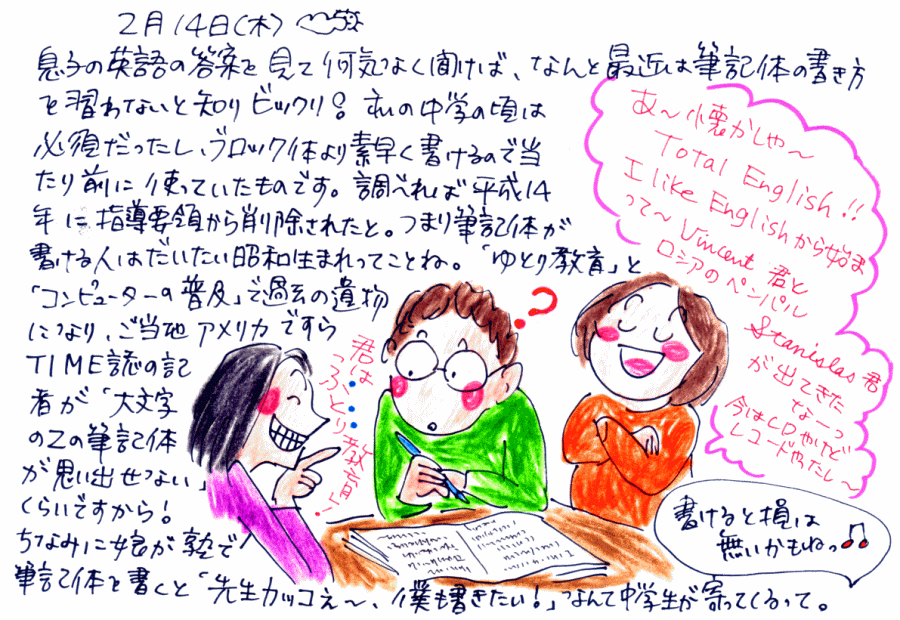 2月14日(木)
息子の英語の答案を見て何気なく聞けば、なんと最近は筆記体の書き方
を習わないと知りビックリ！私の中学の頃は
必須だったし、ブロック体より素早く書けるので当
たり前に使っていたものです。調べれば平成14
年に指導要領から削除されたと。つまり筆記体が
書ける人はだいたい昭和生まれってことね。「ゆとり教育」と
「コンピューターの普及」で過去の遺物
になり、ご当地アメリカですら
TIME誌の記
者が「大文字
のZの筆記体
が思い出せない」
くらいですから！
ちなみに娘が塾で
筆記体を書くと「先生カッコえ〜、僕も書きたい！」なんて中学生が寄ってくるって。
あ〜懐かしや〜
Total English!!
I like Englishから始ま
って〜Vincent君と
ロシアのペンパル
Stanislas君
が出てきた
なーっ
今はCDやけど
レコードやったし〜
君は…
っふとり教育！
書けると損は
無いかもねっ♫